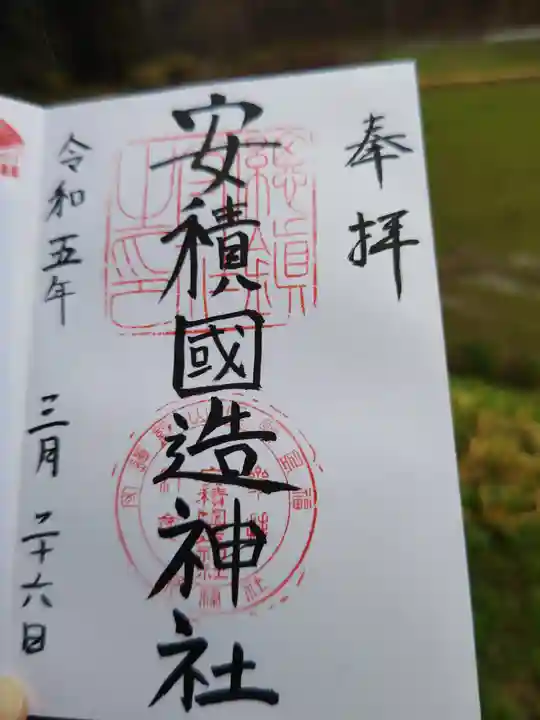 奉拝
安積國造神社
令和五年
三月二十六日